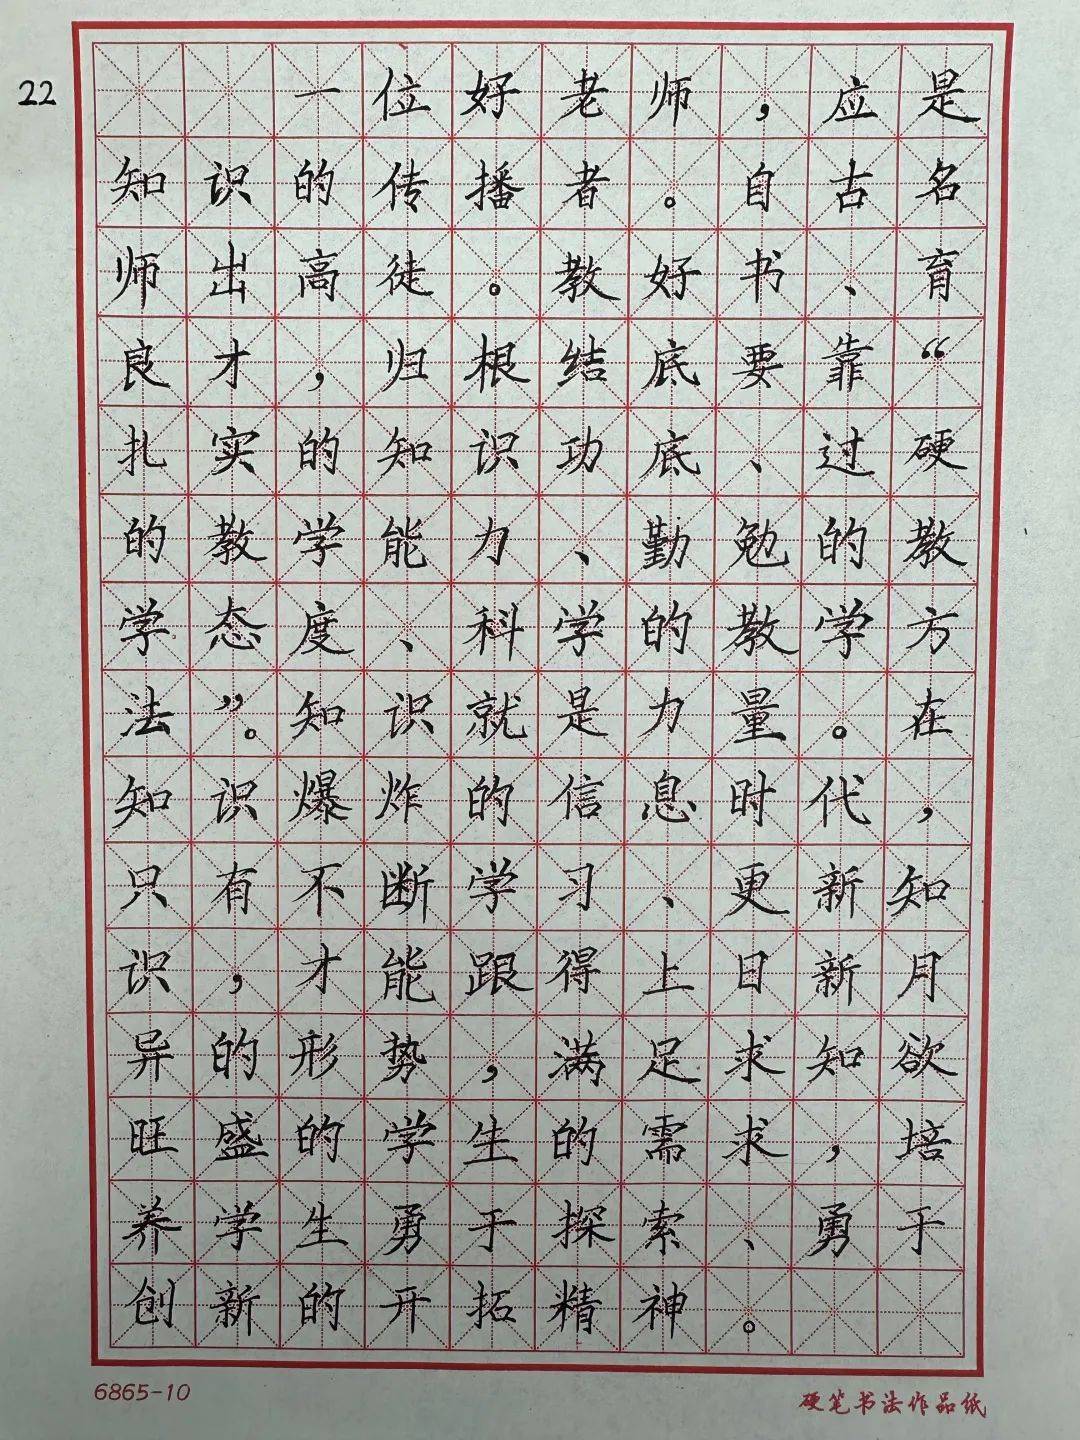 22
一位好老师，应是
知识的传播者。自古名
师出高徒。教好书、育
良才，归根结底要靠“
扎实的知识功底、过硬
的教学能力、勤勉的教
学态度、科学的教学方
法”。知识就是力量。在
知识爆炸的信息时代，
只有不断学习、更新知
识，才能跟得上日新月
异的形势，满足求知欲
旺盛的学生的需求，培
养学生勇于探索、勇于
创新的开拓精神。
6865-10
硬笔书法作品纸